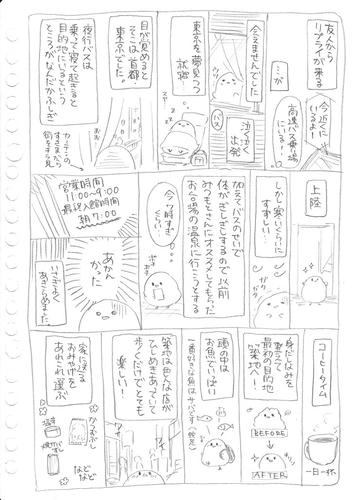 友人から
リプライが来る
今近くに
いるよ!
高速バス乗り場
にいるよ
ミが
会えませんでした
泣く泣く
出発
バス
東京を夢見つつ
就寝
目が覚めると
そこは首都・
東京でした。
おお
夜行バスは
乗って寝て起きると
目的地にいるという
ところがなんだかふしぎ
カーテンの
すきまから
上陸
しかし寒いくらいに
すずしい…
ガク
ガク
加えてバスのせいで
体がぎしぎしするので以前
みつもとさんにオススメしてもらった
お台場の温泉に行こうとする
今7時すぎ
くらい…
営業時間
11:00〜9:00
最終入館時間
朝7:00
あかん
かった
いさぎよく
あきらめました
コーヒータイム
一日一杯
身だしなみを
整えて
最初の目的地
「築地」へ!
BEFORE
AFTER
頭の中は
お魚でいっぱい
一番好きな魚はサバです
築地は色んな店が
ひしめきあっていて
歩くだけでとても
楽しい!
家に送る
おみやげを
あれこれ選ぶ
かつおぶし
などなど